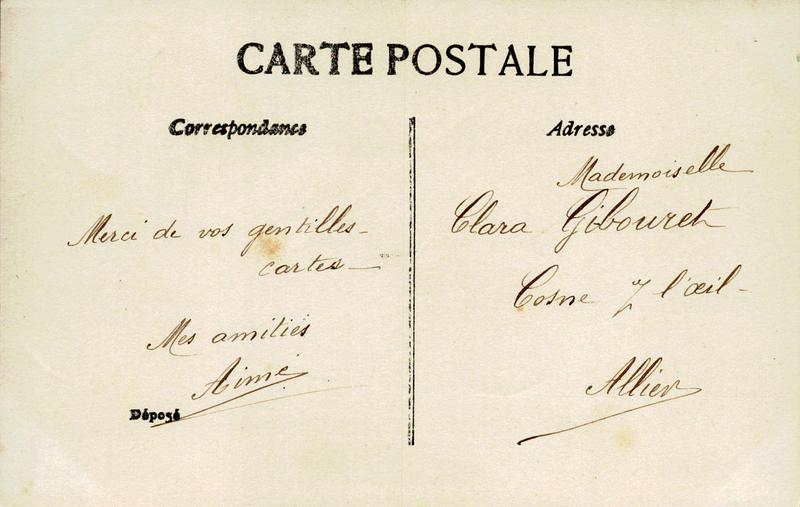 CARTE POSTALE
Correspondance
Adresse
Merci de vos gentilles
cartes
Mes amitiés
Aimé
Déposé
Mademoiselle
Clara Gibouret
Cosne / l'œil
Allier